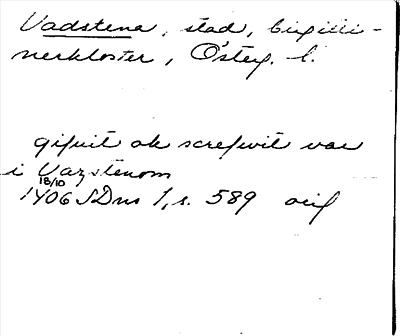 Vadstena, stad, birgitti-
nerkloster, Österg. l.
gifuit ok screfwit var
i Vazstenom
18/10
1406 SDns 1, s. 589 orig